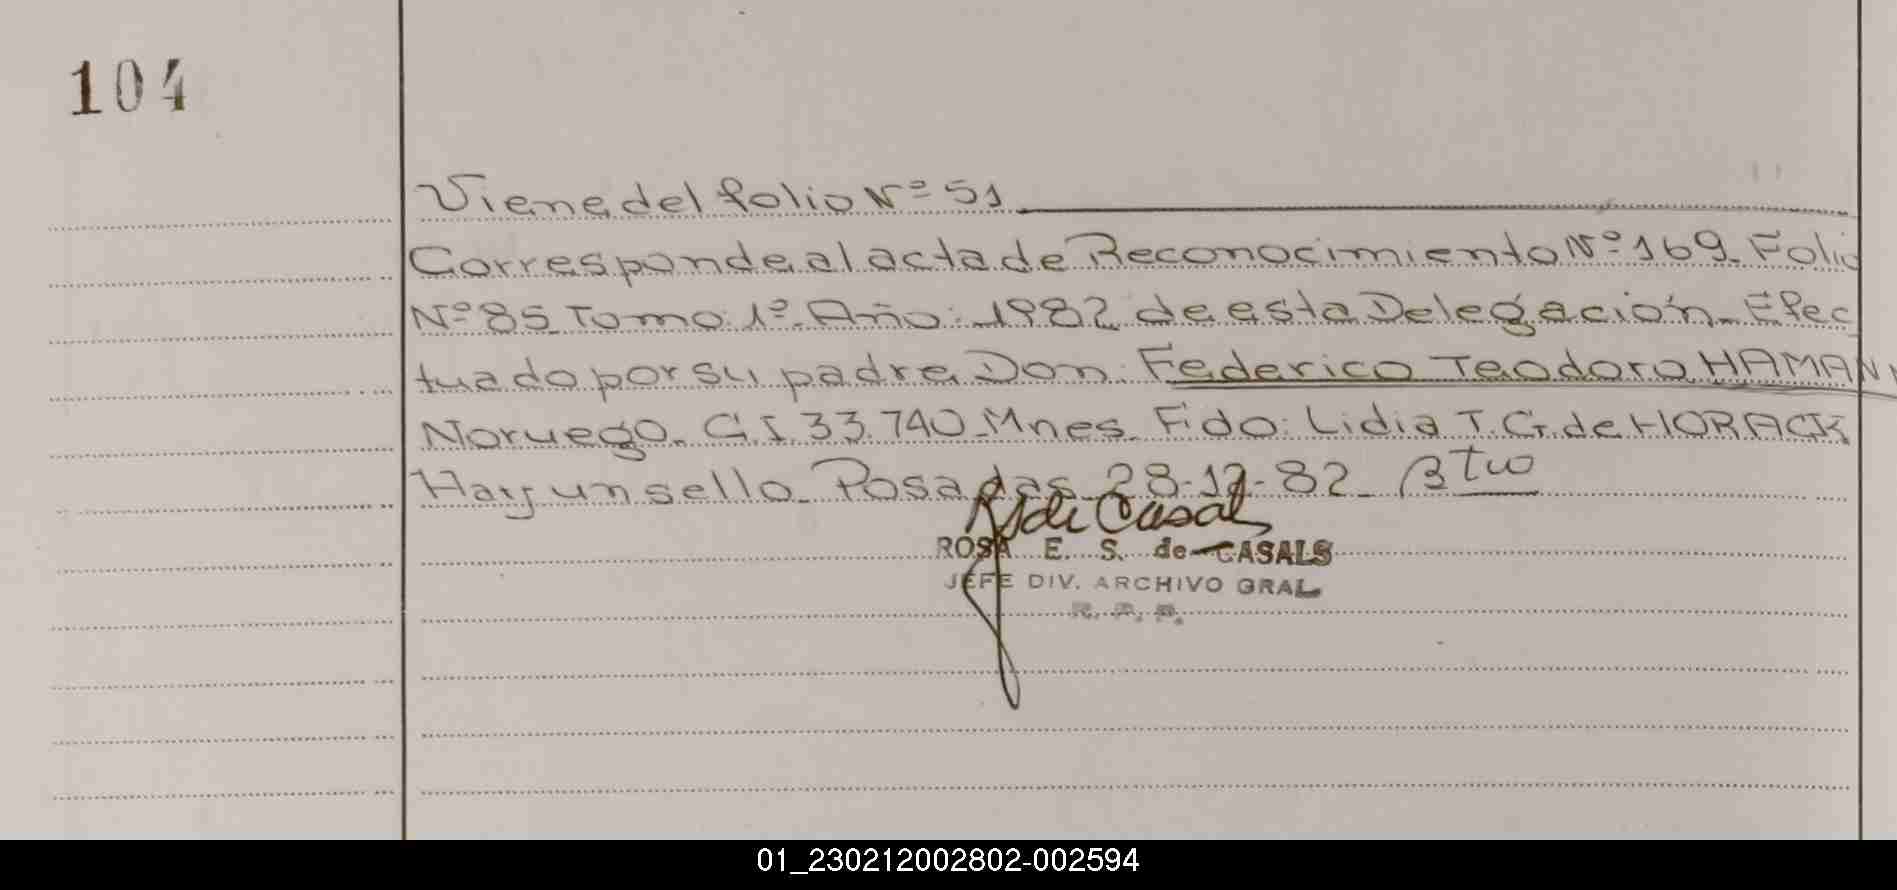 104
Viene del folio Nº 51
Corresponde al acta de Reconocimiento Nº 169. Folio
Nº 85 Tomo 1º. Año: 1982 de esta Delegación. Efec
tuado por su padre Don: Federico Teodoro HAMANN
Noruego. C.I. 33.740 Mnes. Fido: Lidia T. G. de HORACK
Hay un sello. Posadas 28-12-82
ROSA E. S. de CASALS
JEFE DIV. ARCHIVO GRAL
R. P. P.
01_230212002802-002594